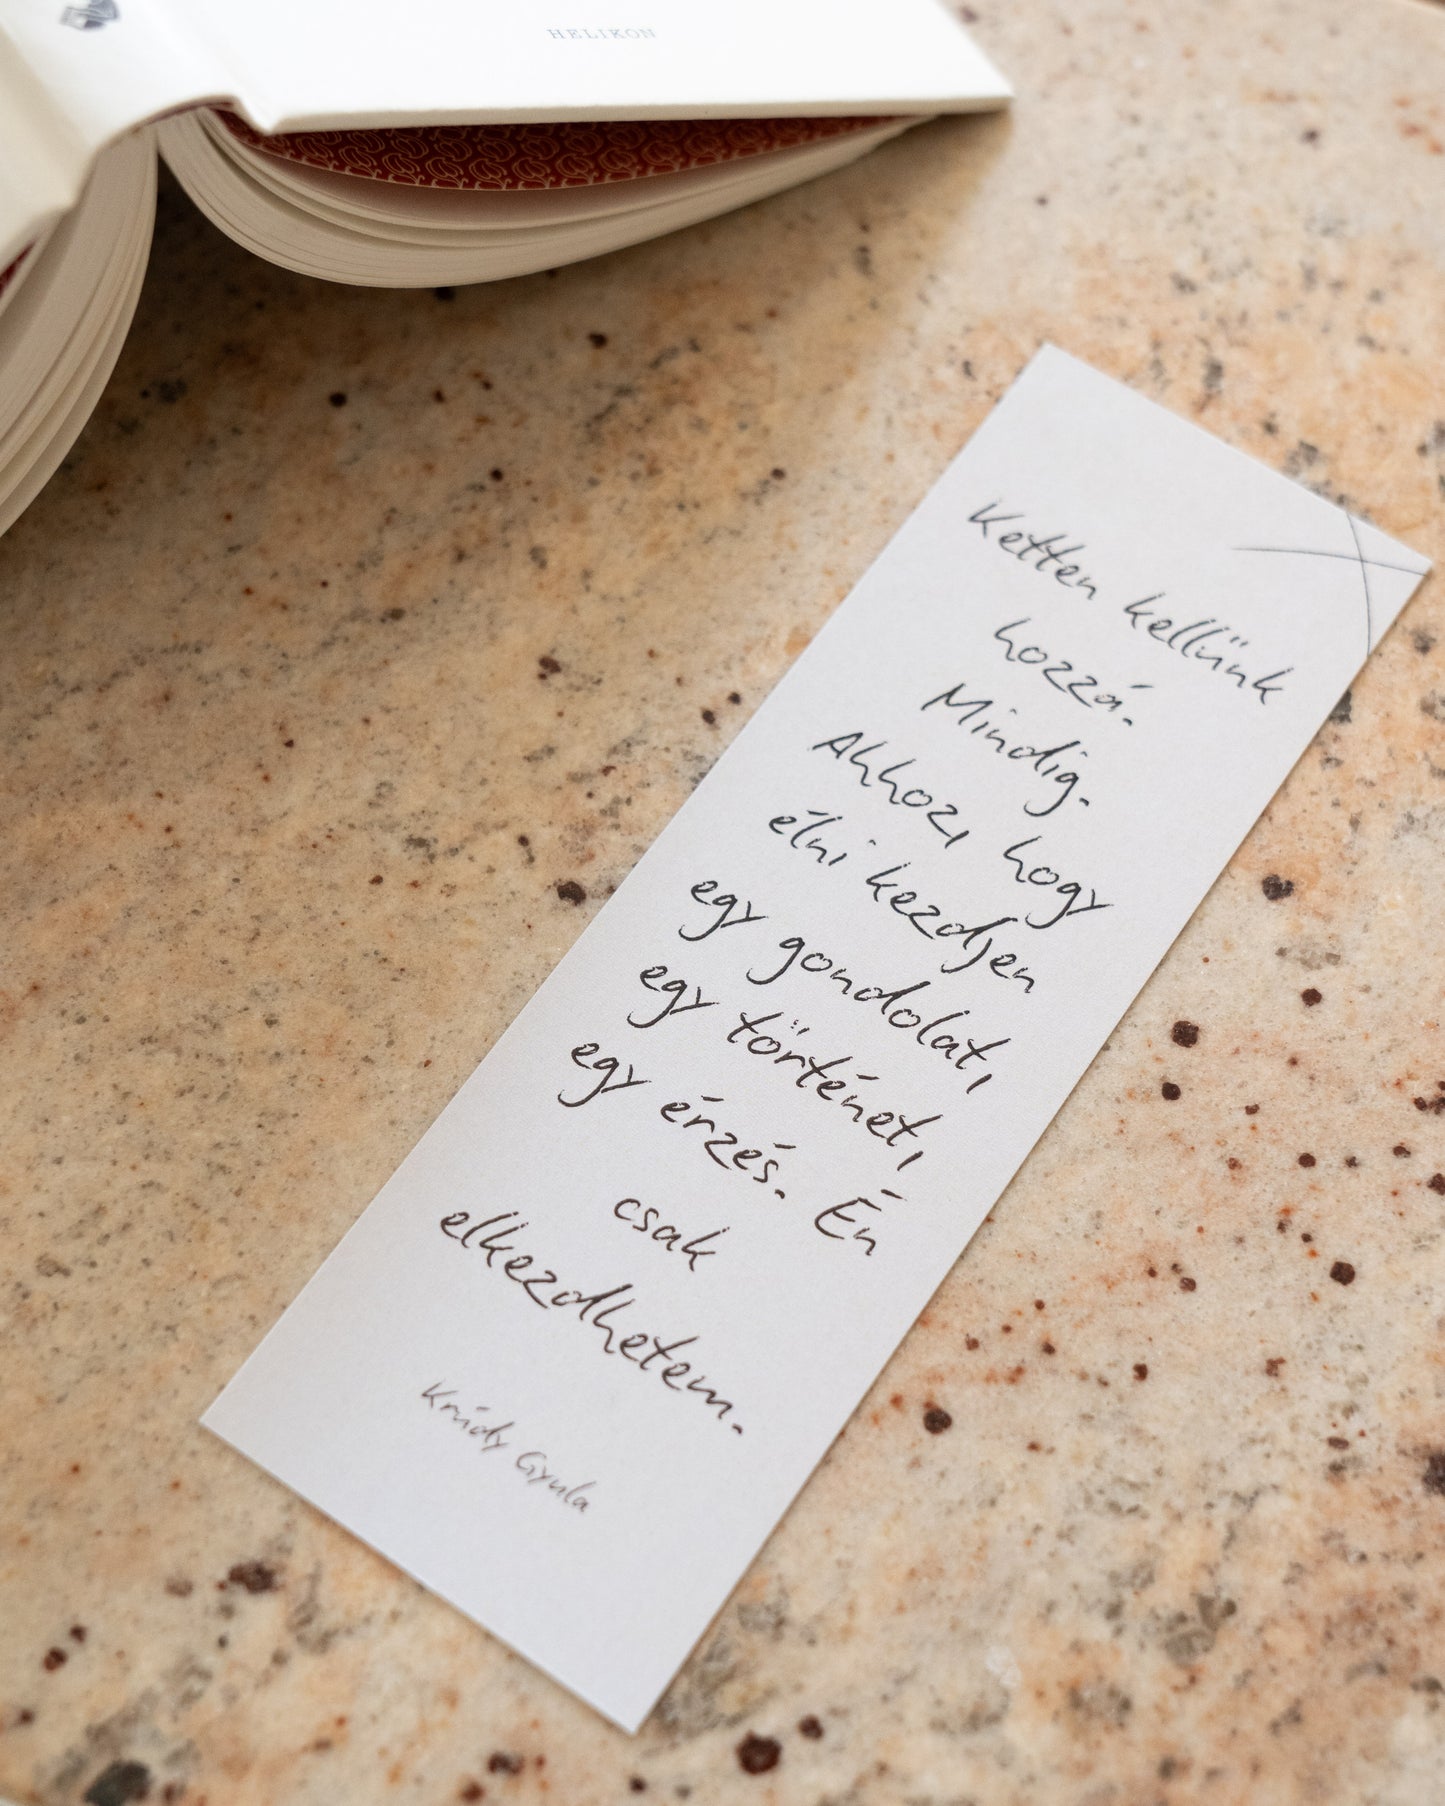 HELIKON
Ketten kellünk
hozzá.
Mindig.
Ahhoz, hogy
élni kezdjen
egy gondolat,
egy történet,
egy érzés. Én
csak
elkezdhetem.
Krúdy Gyula